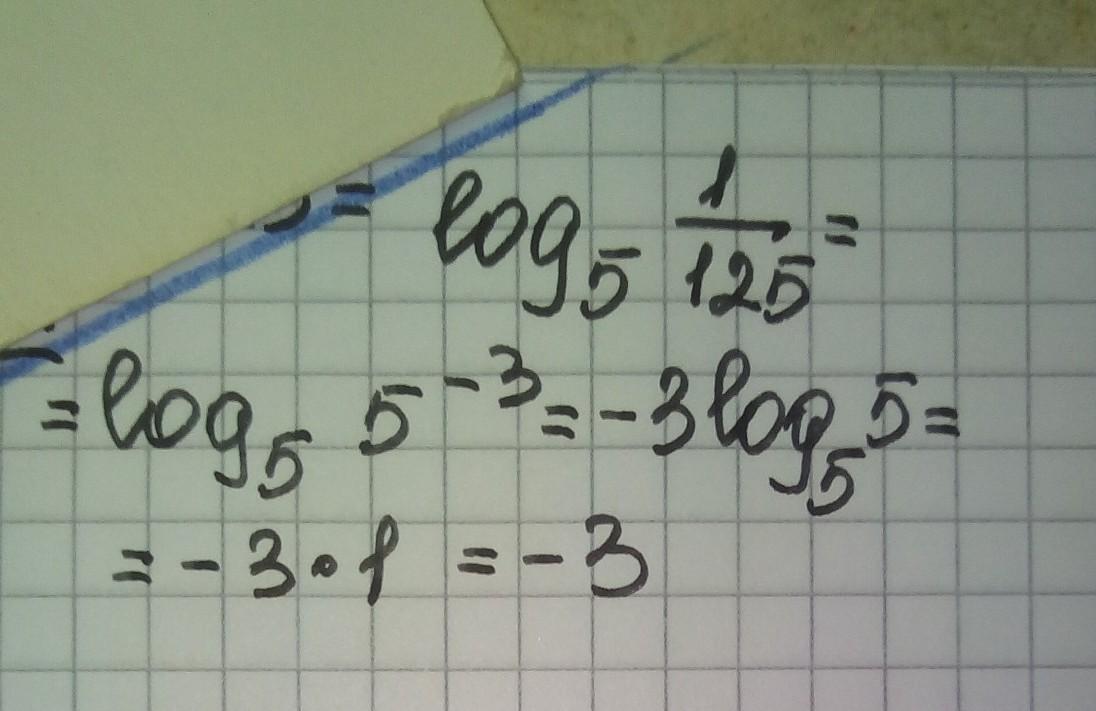 = log₅ 1/125 =
= log₅ 5⁻³ = -3 log₅ 5 =
= -3 • 1 = -3